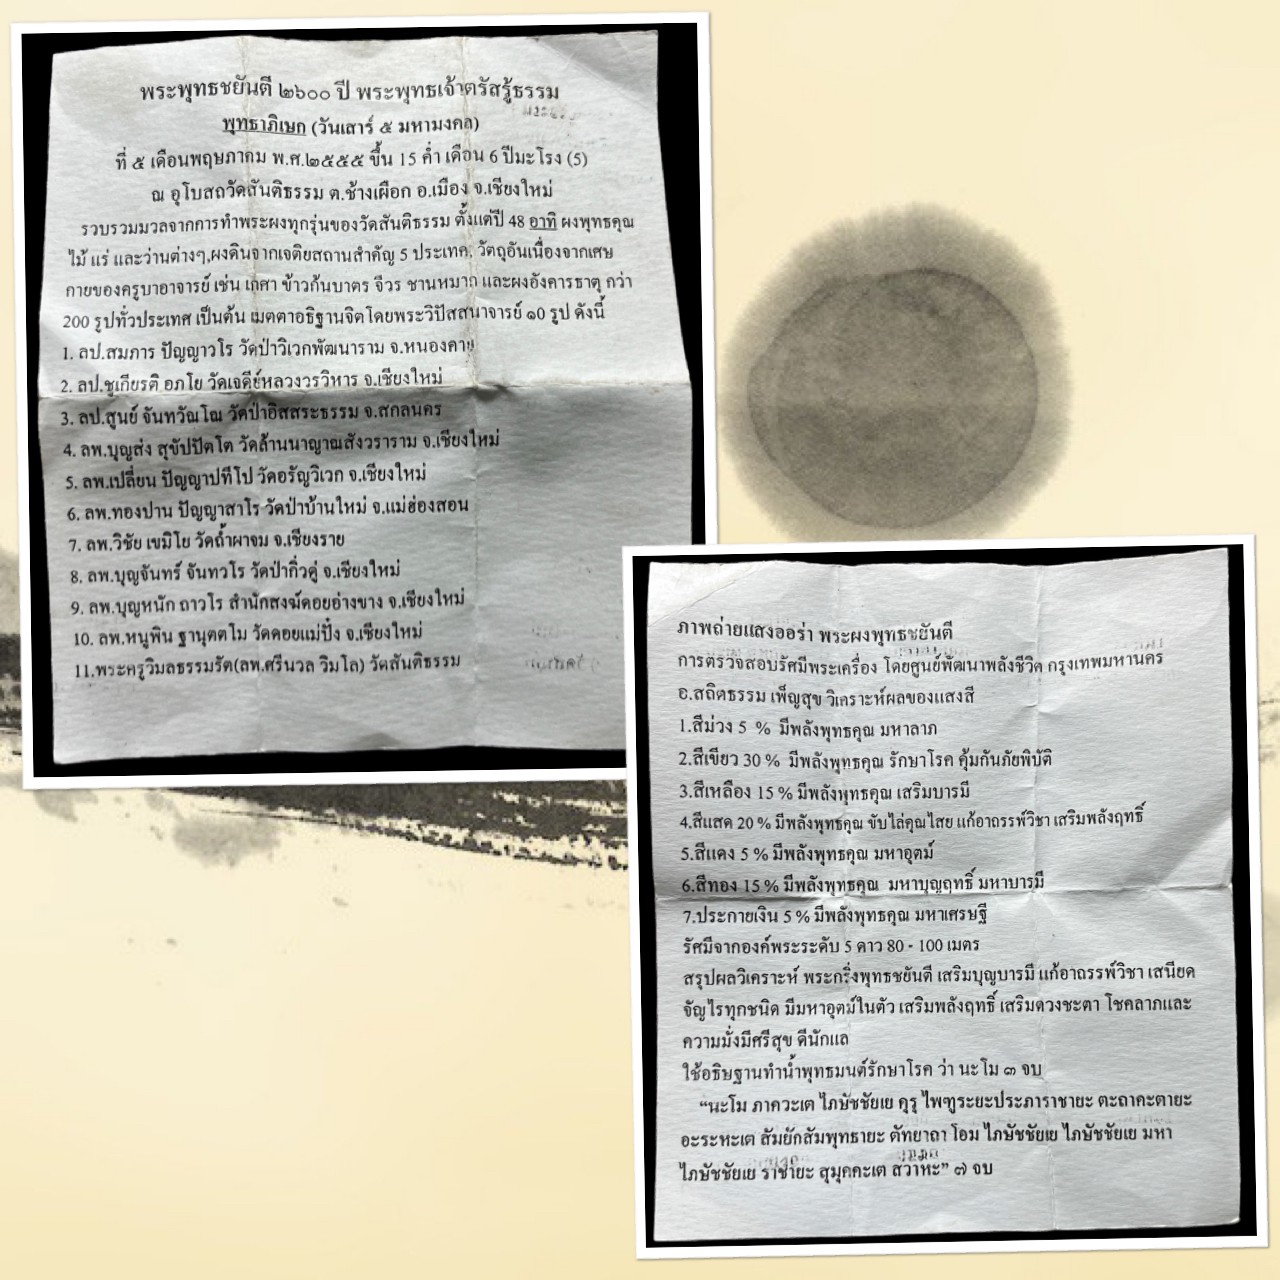 พระพุทธชยันตี ๒๖๐๐ ปี พระพุทธเจ้าตรัสรู้ธรรม
พุทธาภิเษก (วันเสาร์ ๕ มหามงคล)
ที่ ๕ เดือนพฤษภาคม พ.ศ.๒๕๕๕ ขึ้น 15 ค่ำ เดือน 6 ปีมะโรง (5)
ณ อุโบสถวัดสันติธรรม ต.ช้างเผือก อ.เมือง จ.เชียงใหม่
รวบรวมมวลจากการทำพระผงทุกรุ่นของวัดสันติธรรม ตั้งแต่ปี 48 อาทิ ผงพุทธคุณ
ไม้ แร่ และว่านต่างๆ,ผงดินจากเจดิยสถานสำคัญ 5 ประเทศ, วัตถุอันเนื่องจากเศษ
กายของครูบาอาจารย์ เช่น เกศา ข้าวก้นบาตร จีวร ชานหมาก และผงอังคารธาตุ กว่า
200 รูปทั่วประเทศ เป็นต้น เมตตาอธิฐานจิตโดยพระวิปัสสนาจารย์ ๑๐ รูป ดังนี้
1. ลป.สมภาร ปัญญาวโร วัดป่าวิเวกพัฒนาราม จ.หนองคาย
2. ลป.ชูเกียรติ อภโย วัดเจดีย์หลวงวรวิหาร จ.เชียงใหม่
3. ลป.สูนย์ จันทวัณโณ วัดป่าอิสสระธรรม จ.สกลนคร
4. ลพ.บุญส่ง สุขัปปัตโต วัดล้านนาญาณสังวราราม จ.เชียงใหม่
5. ลพ.เปลี่ยน ปัญญาปทีโป วัดอรัญวิเวก จ.เชียงใหม่
6. ลพ.ทองปาน ปัญญาสาโร วัดป่าบ้านใหม่ จ.แม่ฮ่องสอน
7. ลพ.วิชัย เขมิโย วัดถ้ำผาจม จ.เชียงราย
8. ลพ.บุญจันทร์ จันทวโร วัดป่ากิ่วคู่ จ.เชียงใหม่
9. ลพ.บุญหนัก ถาวโร สำนักสงฆ์ดอยอ่างขาง จ.เชียงใหม่
10. ลพ.หนูพิน ฐานุตตโม วัดดอยแม่ปั๋ง จ.เชียงใหม่
11.พระครูวิมลธรรมรัต(ลพ.ศรีนวล วิมโล) วัดสันติธรรม
ภาพถ่ายแสงออร่า พระผงพุทธชยันตี
การตรวจสอบรัศมีพระเครื่อง โดยศูนย์พัฒนาพลังชีวิต กรุงเทพมหานคร
อ.สถิตธรรม เพ็ญสุข วิเคราะห์ผลของแสงสี
1.สีม่วง 5 % มีพลังพุทธคุณ มหาลาภ
2.สีเขียว 30 % มีพลังพุทธคุณ รักษาโรค คุ้มกันภัยพิบัติ
3.สีเหลือง 15 % มีพลังพุทธคุณ เสริมบารมี
4.สีแสด 20 % มีพลังพุทธคุณ ขับไล่คุณไสย แก้อาถรรพ์วิชา เสริมพลังฤทธิ์
5.สีแดง 5 % มีพลังพุทธคุณ มหาอุตม์
6.สีทอง 15 % มีพลังพุทธคุณ มหาบุญฤทธิ์ มหาบารมี
7.ประกายเงิน 5 % มีพลังพุทธคุณ มหาเศรษฐี
รัศมีจากองค์พระระดับ 5 ดาว 80 - 100 เมตร
สรุปผลวิเคราะห์ พระกริ่งพุทธชยันตี เสริมบุญบารมี แก้อาถรรพ์วิชา เสนียด
จัญไรทุกชนิด มีมหาอุตม์ในตัว เสริมพลังฤทธิ์ เสริมดวงชะตา โชคลาภและ
ความมั่งมีศรีสุข ดีนักแล
ใช้อธิษฐานทำน้ำพุทธมนต์รักษาโรค ว่า นะโม ๓ จบ
“นะโม ภาควะเต ไภษัชชัยเย คุรุ ไพฑูระยะประภาราชายะ ตะถาคะตายะ
อะระหะเต สัมยักสัมพุทธายะ ตัทยาถา โอม ไภษัชชัยเย ไภษัชชัยเย มหา
ไภษัชชัยเย ราชายะ สุมุคคะเต สวาหะ” ๗ จบ